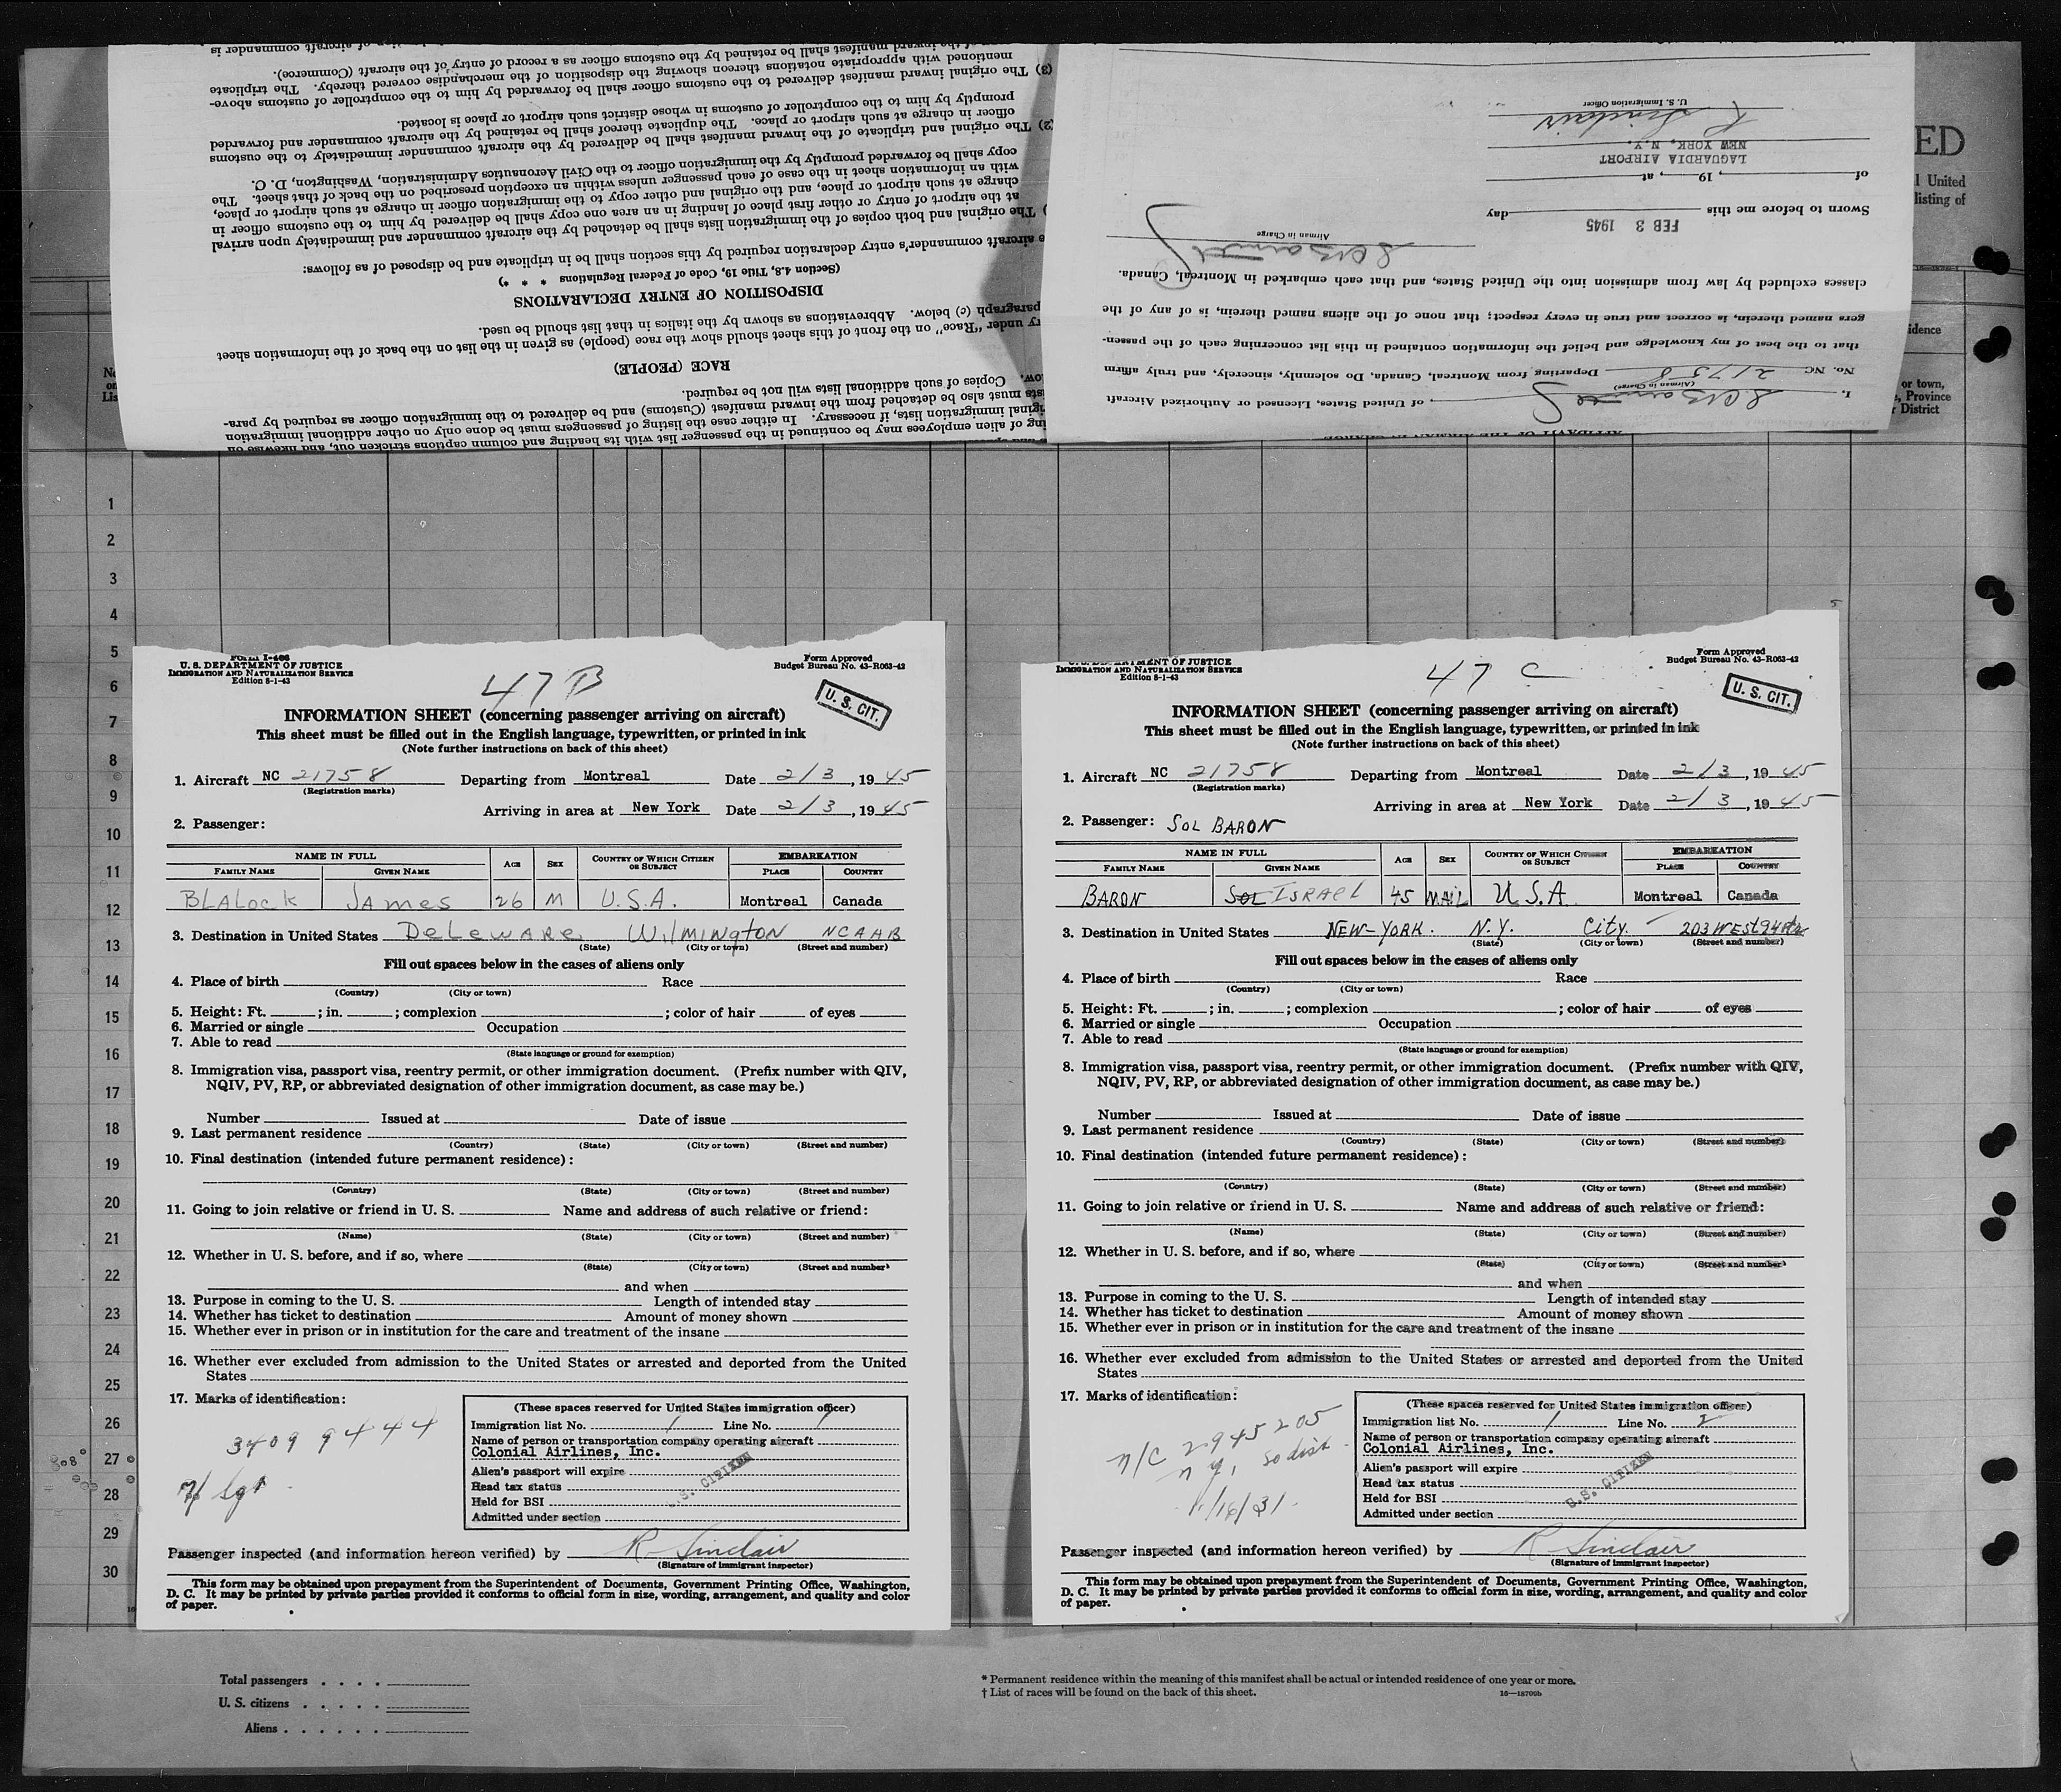 mentioned with appropriate notations thereon showing the disposition of the merchandise covered thereby. The triplicate
of the inward manifest shall be retained by the customs officer as a record of entry of the aircraft (Commerce).
(3) The original inward manifest delivered to the customs officer shall be forwarded by him to the comptroller of customs above-
promptly by him to the comptroller of customs in whose district such airport or place is located.
officer in charge at such airport or place. The duplicate thereof shall be retained by the aircraft commander and forwarded
(2) The original and triplicate of the inward manifest shall be delivered by the aircraft commander immediately to the customs
copy shall be forwarded promptly by the immigration officer to the Civil Aeronautics Administration, Washington, D. C.
with an information sheet in the case of each passenger unless within an exception prescribed on the back of that sheet. The
charge at such airport or place, and the original and other copy to the immigration officer in charge at such airport or place,
at the airport of entry or other first place of landing in an area one copy shall be delivered by him to the customs officer in
) The original and both copies of the immigration lists shall be detached by the aircraft commander and immediately upon arrival
e aircraft commander's entry declaration required by this section shall be in triplicate and be disposed of as follows:
(Section 4.8, Title 19, Code of Federal Regulations * * *)
DISPOSITION OF ENTRY DECLARATIONS
paragraph (c) below. Abbreviations as shown by the italics in that list should be used.
ry under "Race" on the front of this sheet should show the race (people) as given in the list on the back of the information sheet
RACE (PEOPLE)
low. Copies of such additional lists will not be required.
sts must also be detached from the inward manifest (Customs) and be delivered to the immigration officer as required by para-
ginal immigration lists, if necessary. In either case the listing of passengers must be done only on other additional immigration
ng of alien employees may be continued in the passenger list with its heading and column captions stricken out, and likewise on
U. S. Immigration Officer
R Sinclair
LAGUARDIA AIRPORT
NEW YORK, N.Y.
of , 19 , at
Sworn to before me this day
FEB 3 1945
Airman in Charge
classes excluded by law from admission into the United States, and that each embarked in Montreal, Canada.
gers named therein, is correct and true in every respect; that none of the aliens named therein, is of any of the
that to the best of my knowledge and belief the information contained in this list concerning each of the passen-
No. NC 21758 Departing from Montreal, Canada, Do solemnly, sincerely, and truly affirm
(Airman in Charge)
I, , of United States, Licensed or Authorized Aircraft
AFFIDAVIT OF THE AIRMAN IN CHARGE
ED
l United
listing of
idence
or town,
, Province
r District
No
on
Lis
1
2
3
4
5
6
7
8
9
10
11
12
13
14
15
16
17
18
19
20
21
22
23
24
25
26
27
28
29
30
FORM I-466
U. S. DEPARTMENT OF JUSTICE
IMMIGRATION AND NATURALIZATION SERVICE
Edition 8-1-43
Form Approved
Budget Bureau No. 43-R063-42
47 B
U. S. CIT.
INFORMATION SHEET (concerning passenger arriving on aircraft)
This sheet must be filled out in the English language, typewritten, or printed in ink
(Note further instructions on back of this sheet)
1. Aircraft NC 21758 Departing from Montreal Date 2/3, 1945
(Registration marks)
Arriving in area at New York Date 2/3, 1945
2. Passenger:
NAME IN FULL AGE SEX COUNTRY OF WHICH CITIZEN OR SUBJECT EMBARKATION
FAMILY NAME GIVEN NAME PLACE COUNTRY
BLALock JAmes 26 M U.S.A. Montreal Canada
3. Destination in United States DeLeware WilmINgtoN NCAAB
(State) (City or town) (Street and number)
Fill out spaces below in the cases of aliens only
4. Place of birth Race
(Country) (City or town)
5. Height: Ft. ; in. ; complexion ; color of hair of eyes
6. Married or single Occupation
7. Able to read
(State language or ground for exemption)
8. Immigration visa, passport visa, reentry permit, or other immigration document. (Prefix number with QIV,
NQIV, PV, RP, or abbreviated designation of other immigration document, as case may be.)
Number Issued at Date of issue
9. Last permanent residence
(Country) (State) (City or town) (Street and number)
10. Final destination (intended future permanent residence):
(Country) (State) (City or town) (Street and number)
11. Going to join relative or friend in U. S. Name and address of such relative or friend:
(Name) (State) (City or town) (Street and number)
12. Whether in U. S. before, and if so, where
(State) (City or town) (Street and number)
and when
13. Purpose in coming to the U. S. Length of intended stay
14. Whether has ticket to destination Amount of money shown
15. Whether ever in prison or in institution for the care and treatment of the insane
16. Whether ever excluded from admission to the United States or arrested and deported from the United
States
17. Marks of identification:
3409 9444
T/ Sgt
(These spaces reserved for United States immigration officer)
Immigration list No. 1 Line No. 1
Name of person or transportation company operating aircraft
Colonial Airlines, Inc.
Alien's passport will expire
Head tax status
Held for BSI
Admitted under section
U.S. CITIZEN
Passenger inspected (and information hereon verified) by R Sinclair
(Signature of immigrant inspector)
This form may be obtained upon prepayment from the Superintendent of Documents, Government Printing Office, Washington,
D. C. It may be printed by private parties provided it conforms to official form in size, wording, arrangement, and quality and color
of paper.
U. S. DEPARTMENT OF JUSTICE
IMMIGRATION AND NATURALIZATION SERVICE
Edition 8-1-43
Form Approved
Budget Bureau No. 43-R063-42
47 C
U. S. CIT.
INFORMATION SHEET (concerning passenger arriving on aircraft)
This sheet must be filled out in the English language, typewritten, or printed in ink
(Note further instructions on back of this sheet)
1. Aircraft NC 21758 Departing from Montreal Date 2/3, 1945
(Registration marks)
Arriving in area at New York Date 2/3, 1945
2. Passenger: SOL BARON
NAME IN FULL AGE SEX COUNTRY OF WHICH CITIZEN OR SUBJECT EMBARKATION
FAMILY NAME GIVEN NAME PLACE COUNTRY
BARON SOL ISRAEL 45 MAIL U.S.A. Montreal Canada
3. Destination in United States NEW-YORK. N.Y. City. 203 WEST 94
(State) (City or town) (Street and number)
Fill out spaces below in the cases of aliens only
4. Place of birth Race
(Country) (City or town)
5. Height: Ft. ; in. ; complexion ; color of hair of eyes
6. Married or single Occupation
7. Able to read
(State language or ground for exemption)
8. Immigration visa, passport visa, reentry permit, or other immigration document. (Prefix number with QIV,
NQIV, PV, RP, or abbreviated designation of other immigration document, as case may be.)
Number Issued at Date of issue
9. Last permanent residence
(Country) (State) (City or town) (Street and number)
10. Final destination (intended future permanent residence):
(Country) (State) (City or town) (Street and number)
11. Going to join relative or friend in U. S. Name and address of such relative or friend:
(Name) (State) (City or town) (Street and number)
12. Whether in U. S. before, and if so, where
(State) (City or town) (Street and number)
and when
13. Purpose in coming to the U. S. Length of intended stay
14. Whether has ticket to destination Amount of money shown
15. Whether ever in prison or in institution for the care and treatment of the insane
16. Whether ever excluded from admission to the United States or arrested and deported from the United
States
17. Marks of identification:
N/C 2945205
n y, so dist.
/16/31
(These spaces reserved for United States immigration officer)
Immigration list No. 1 Line No. 2
Name of person or transportation company operating aircraft
Colonial Airlines, Inc.
Alien's passport will expire
Head tax status
Held for BSI
Admitted under section
U.S. CITIZEN
Passenger inspected (and information hereon verified) by R Sinclair
(Signature of immigrant inspector)
This form may be obtained upon prepayment from the Superintendent of Documents, Government Printing Office, Washington,
D. C. It may be printed by private parties provided it conforms to official form in size, wording, arrangement, and quality and color
of paper.
Total passengers . . . .
U. S. citizens . . . . .
Aliens . . . . . .
* Permanent residence within the meaning of this manifest shall be actual or intended residence of one year or more.
† List of races will be found on the back of this sheet.
16—18709b